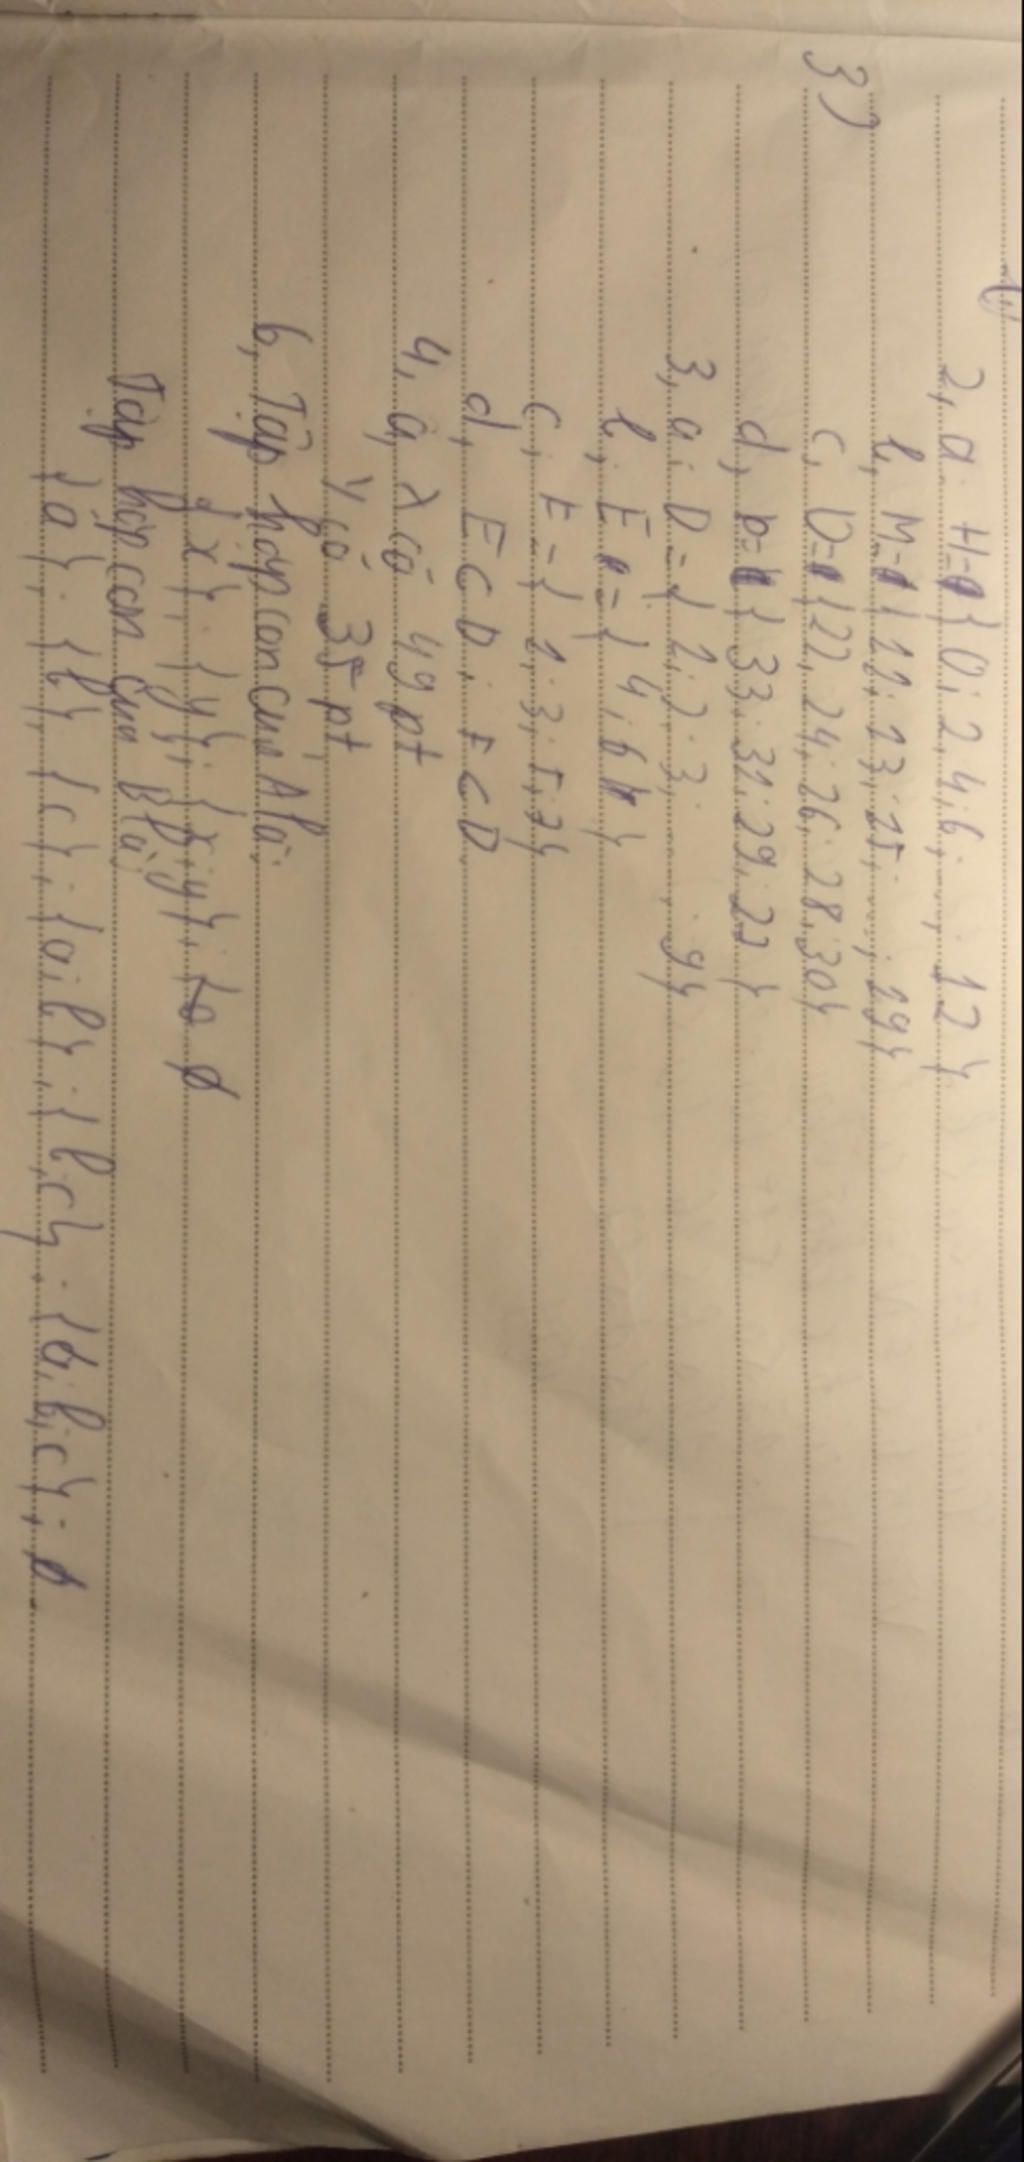 3)
2, a. H = { 0; 2, 4; 6; ...; 12 }
b, M = { 11; 13; 15; ...; 19 }
c, D = { 22, 24; 26; 28; 30 }
d, = { 33; 31; 29; 27 }
3, a; D = { 1; 2; 3; ...; 9 }
b; E = { 4; 6 }
c; F = { 1; 3; 5; 7 }
d, E ⊂ D; F ⊂ D.
4, a, X có 49 pt
Y có 35 pt
6, Tập hợp con của A là:
{ x }; { y }; { x; y }; ø
Tập hợp con của B là:
{ a }; { b }; { c }; { a; b }; { b, c }; { a, b, c }; ø.